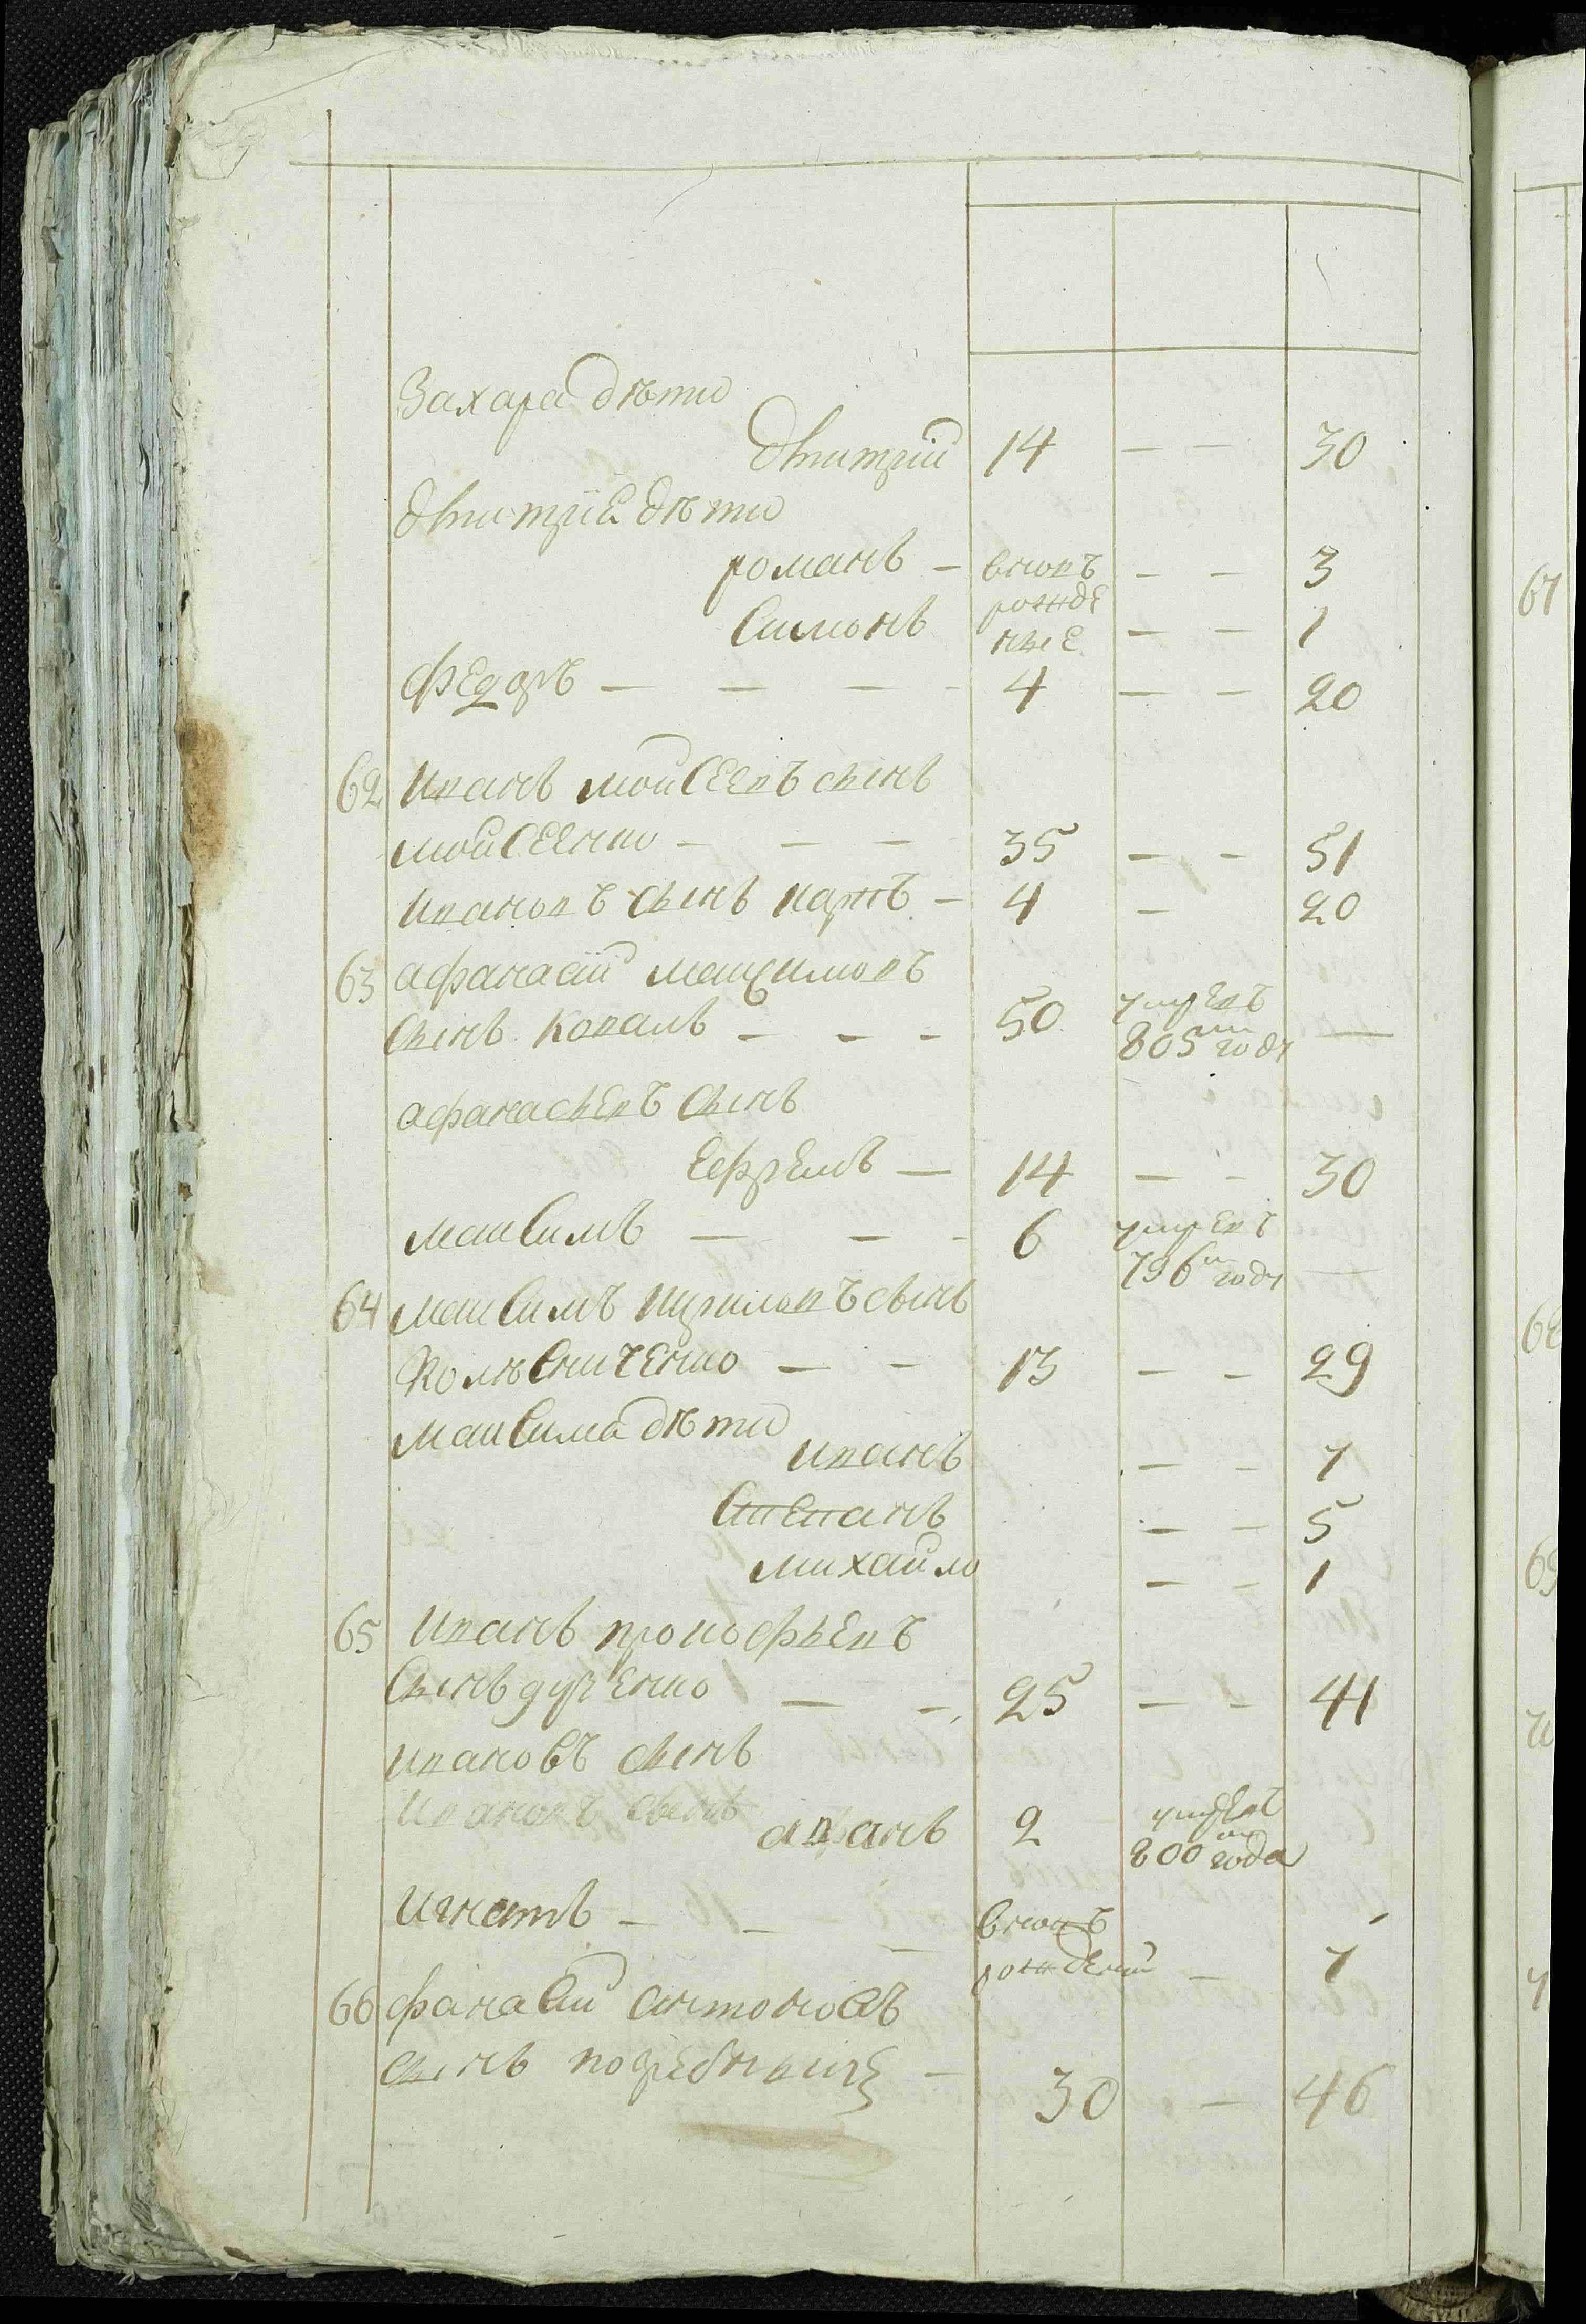 Захара дѣти
Дмитрій 14 — — 30
Дмитрія дѣти
романъ — вновь — — 3
рожде
Симонъ ные — — 1
Федоръ — — — 4 — — 20
62 Иванъ мойсеевъ сынъ
мойсеенко — — — 35 — — 51
Ивановъ сынъ карпъ — 4 — 20
63 афанасій максимовъ
сынъ коваль — — — 50 умревъ
805 году —
афанасьевъ сынъ
Ефремъ — 14 — — 30
максимъ — — — 6 умревъ
796 году —
64 максимъ кириловъ сынъ
Колѣсниченко — — 13 — — 29
максима дѣти
иванъ — — 7
Степанъ — — 5
михайло — — 1
65 Иванъ прокофьевъ
сынъ дученко — — 25 — — 41
ивановъ сынъ
Ивановъ сынъ
иванъ 2 умревъ
800 года
Игнатъ — — — вновь
рожденій — 7
66 фанасій антоновъ
сынъ — 30 — 46
67
68
69